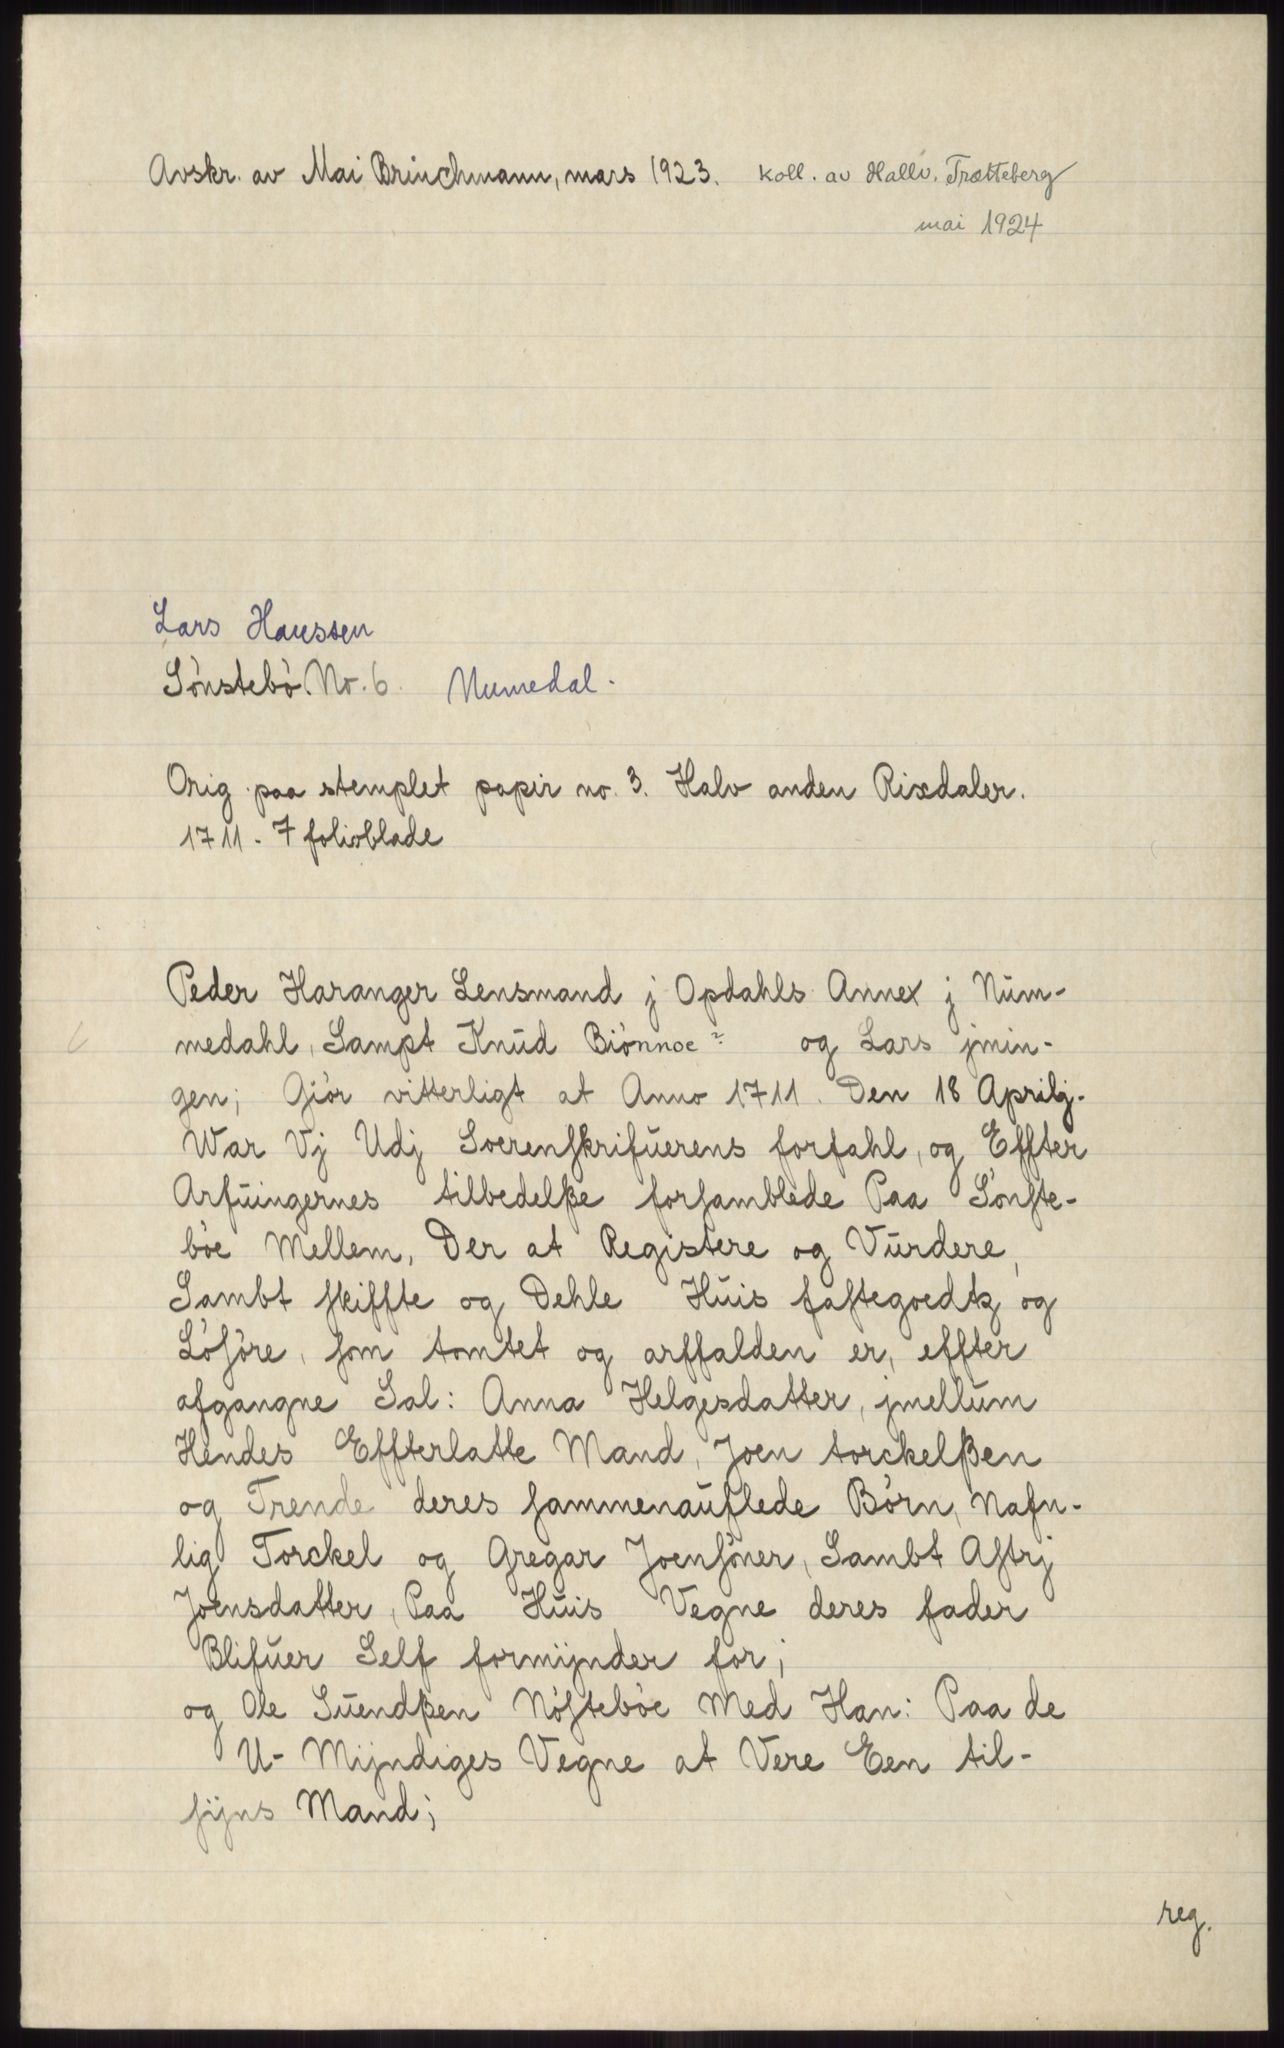 Avskr. av Mai Brinchmann, mars 1923. Koll. av Hallv. Trætteberg
mai 1924
Lars Hanssen
Sönstebö No. 6. Numedal.
Orig. paa stemplet papir no. 3. Halv anden Rixdaler.
1711. 7 folioblade
Peder Haranger Lensmand j Opdahls Annex j Num-
medahl, Sampt Knud Biönnoe ? og Lars jmin-
gen; Giör vitterligt at Anno 1711. Den 18 Aprilj.
War Vj Udj Soerenskrifuerens forfahl, og Effter
Arfuingernes tilbedelße forsamblede Paa Sönste-
böe Mellem, Der at Registere og Vurdere,
Sambt skiffte og Dehle Huis fastegoedtz og
Lösöre, som tomtet og arffalden er, effter
afgangne Sal: Anna Helgesdatter, jmellum
Hendes Effterlatte Mand, Joen torckelßen
og Trende deres sammenauflede Börn, Nafn-
lig Torckel og Gregar Joensöner, Sambt Astrj
Joensdatter, Paa Huis Vegne deres fader
Blifuer Self formijnder for;
og Ole Suendßen Nösteböe Med Han: Paa de
U- Mijndiges Vegne at Vere Een til-
sijns Mand;
reg.